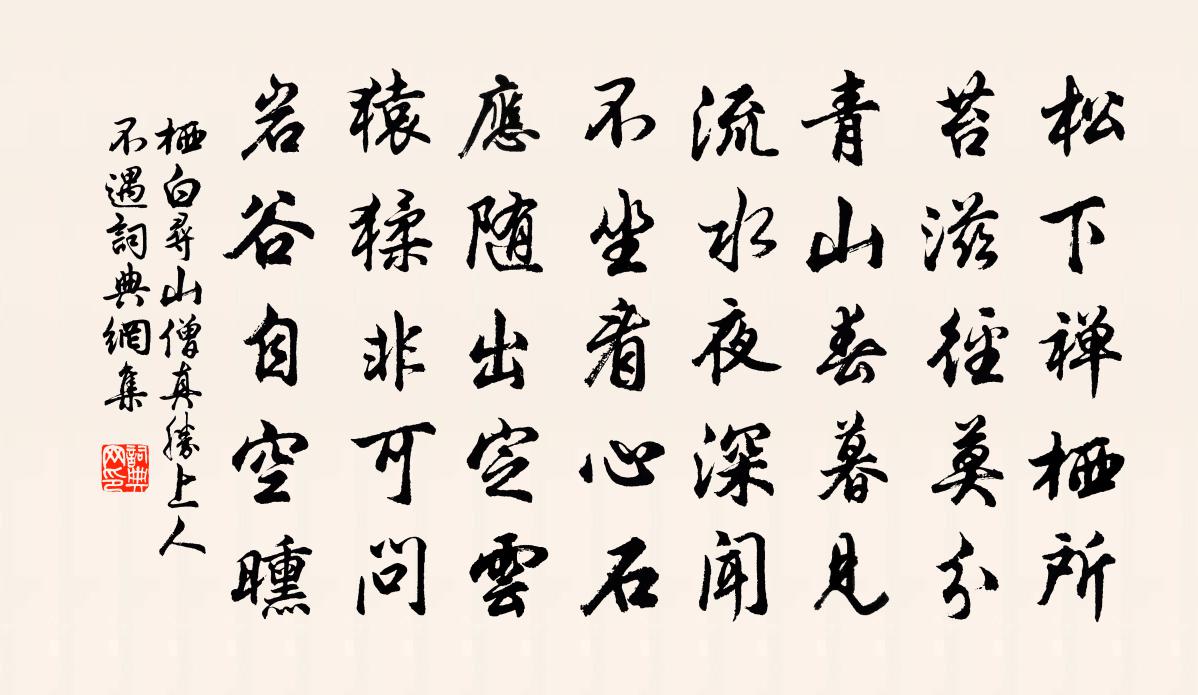 松下禅栖所
苔滋径莫分
青山春暮见
流水夜深闻
不坐看心石
應随出定雲
猿猱非可问
岩谷自空曛
栖白尋山僧真勝上人
不遇詞典網集
詞典
网印